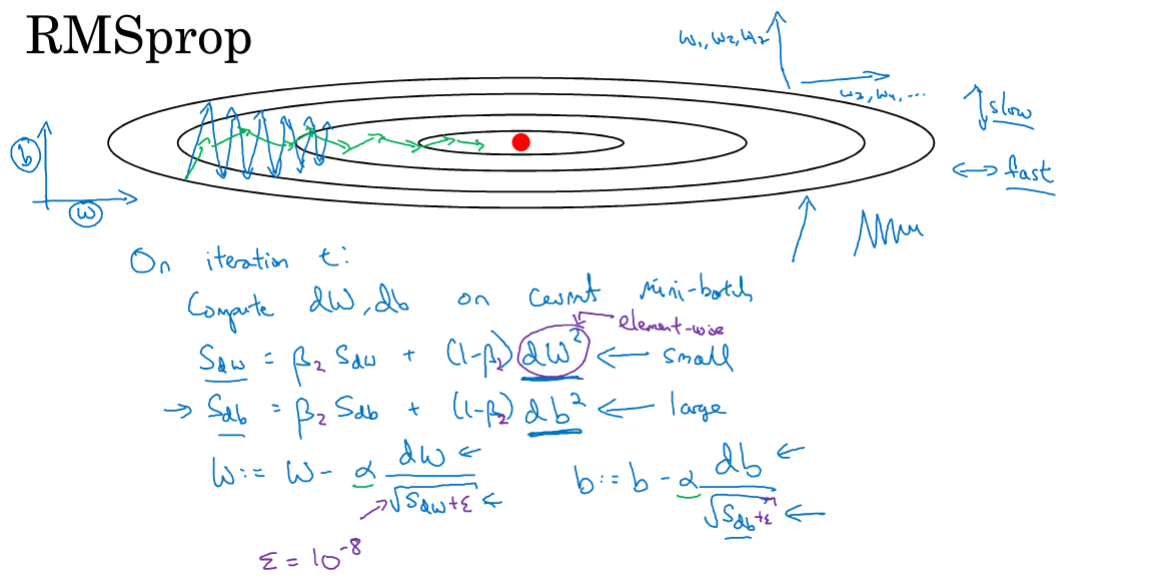 RMSprop
w₁, w₂, w₂
w₃, w₄, ...
slow
fast
b
w
On iteration t:
Compute dW, db on current mini-batch
element-wise
S_dw = β₂ S_dw + (1-β₂) dW² ← small
→ S_db = β₂ S_db + (1-β₂) db² ← large
W := W - α dW / √(S_dw + ε) ← b := b - α db / √(S_db + ε) ←
ε = 10⁻⁸